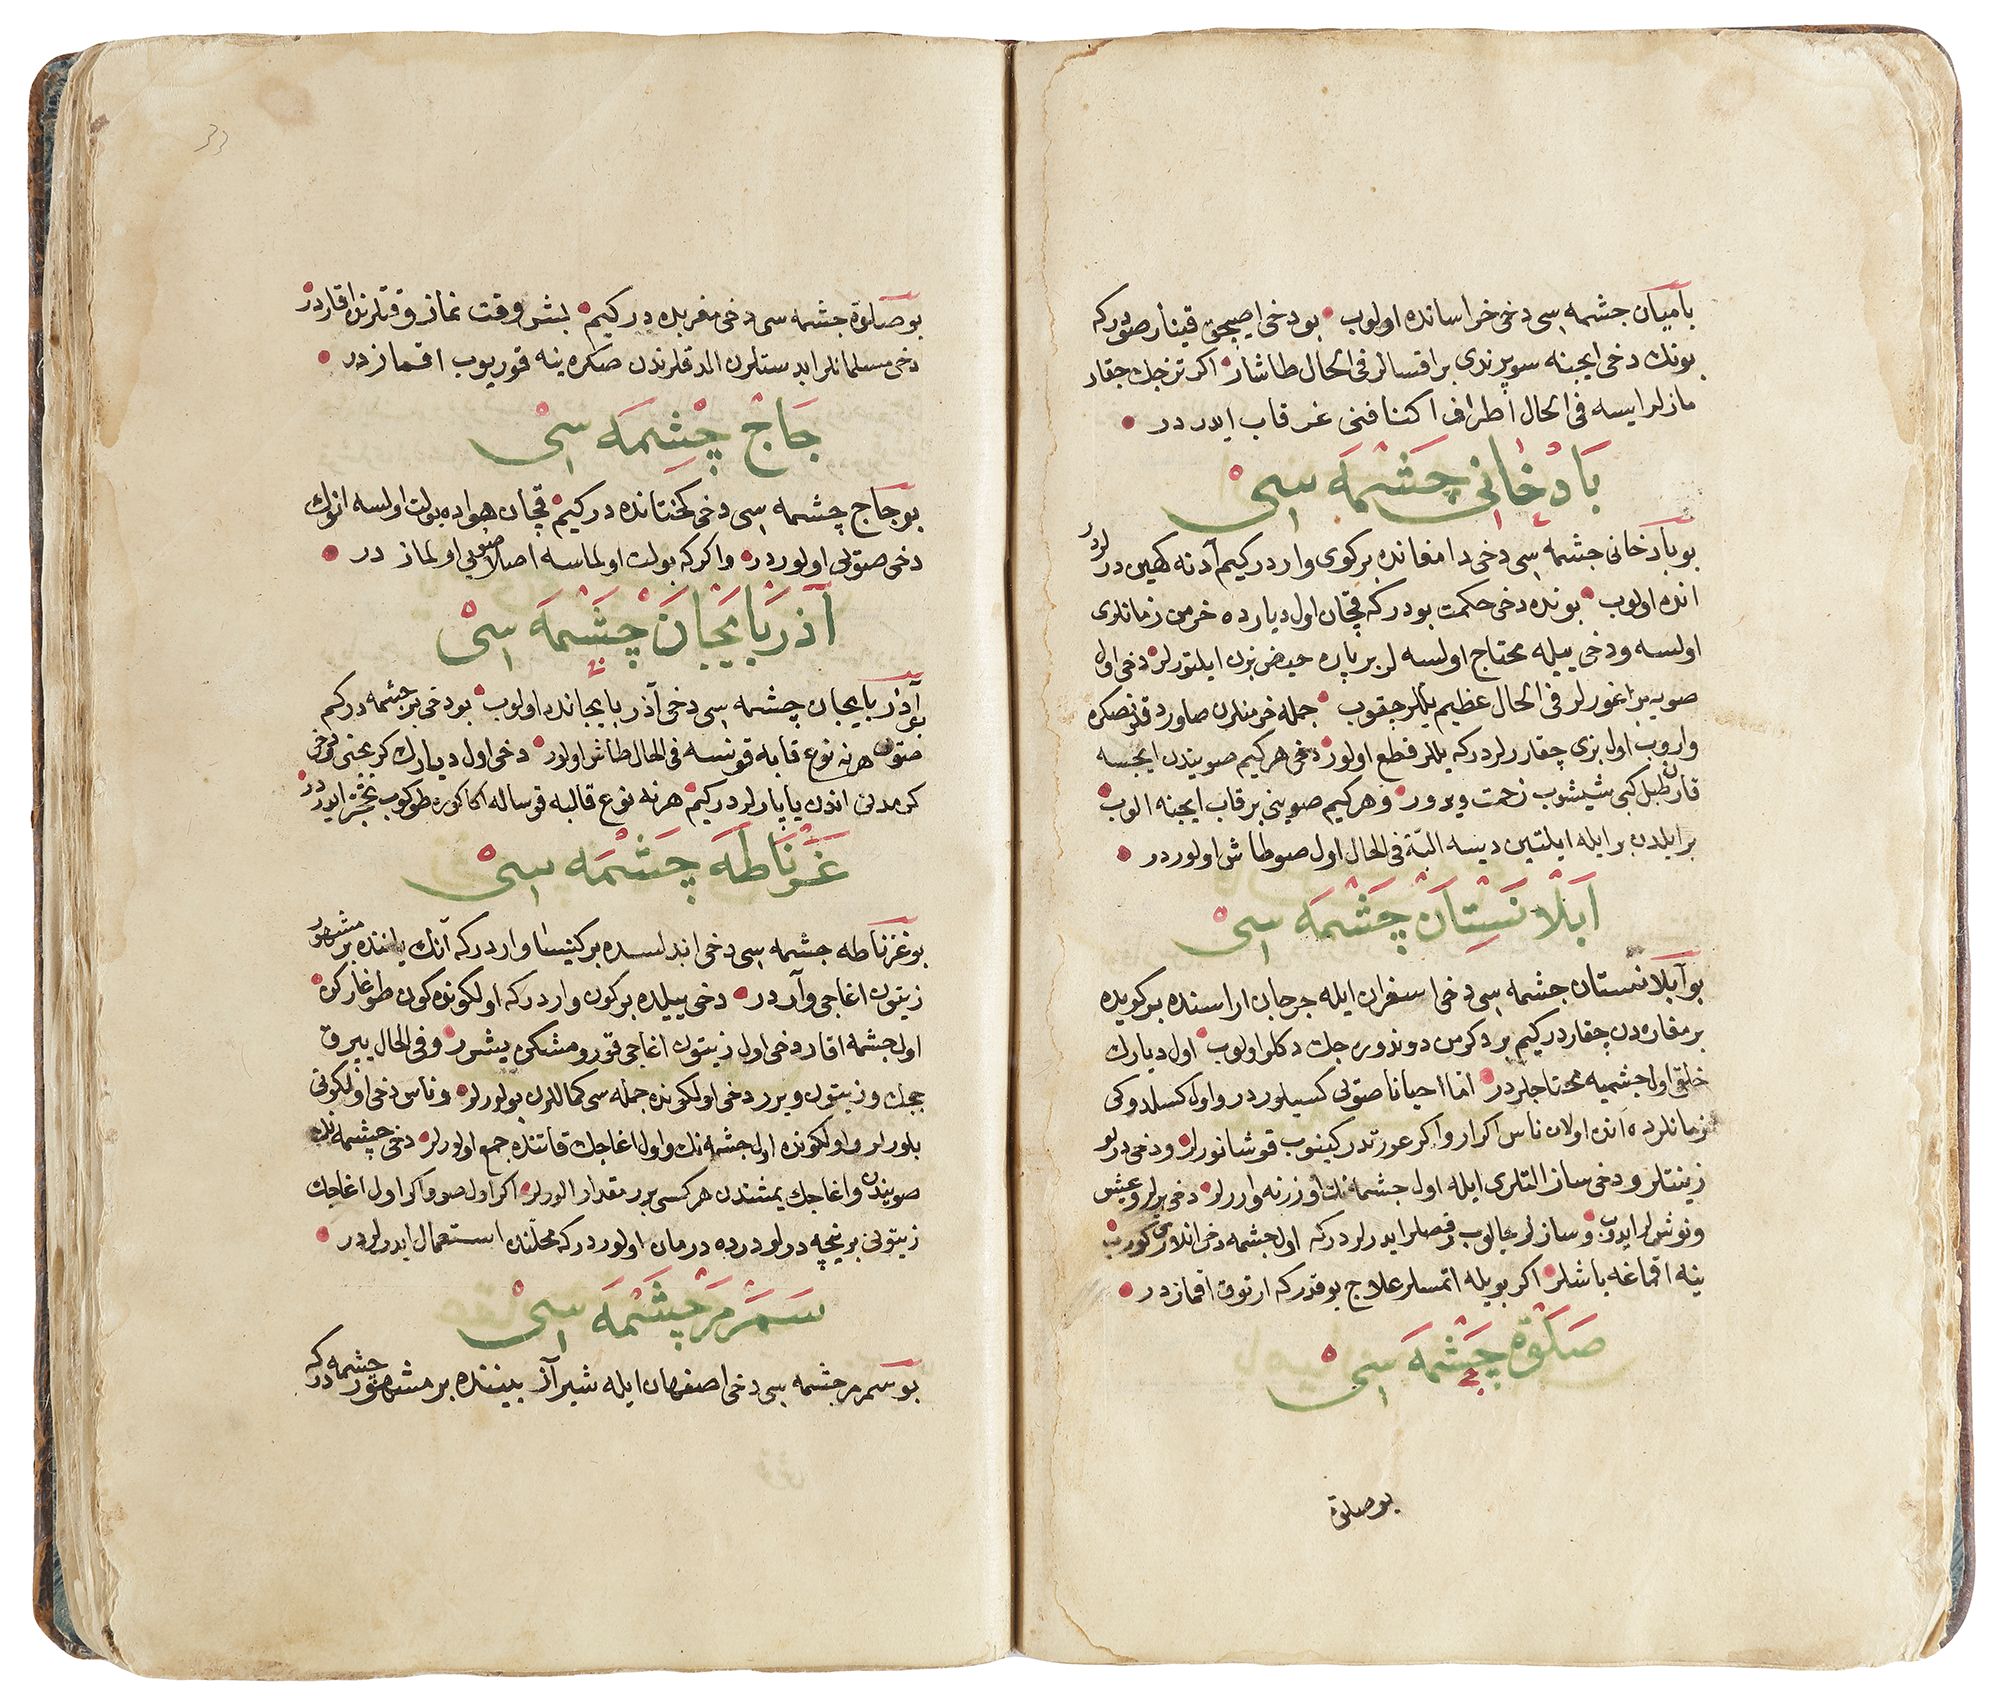 باميان جشمه سى دخى خراسانده اولوب بو دخى اصيجق قينار صودر كه
بونك دخى ايچنه سوپرندى براقسالر فى الحال طاشار اكر تزجك جقار
مازلر ايسه فى الحال اطراف اكنافنى غرقاب ايدر در
بَادْخَانِى چَشْمَه سِىْ
بو بادخانى جشمه سى دخى دامغانده بر كوى واردر كيم آدنه كهين درلر
انده اولوب بونده دخى حكمت بودر كه قچان اول ديارده خرمن زمانلرى
اولسه و دخى ييله محتاج اولسه لر بر پاره حيض بزن ايلتورلر دخى اول
صويه براغورلر فى الحال عظيم يللر جقوب جمله خرمنلرن صاوردقلرنصكره
واروب اول بزى چقاررلر در كه يللر قطع اولور دخى هر كيم صويندن ايجسه
قارن طبل كبى شيشوب زحمت ويرور و هر كيم صوينى بر قاب ايچنه الوب
بر ايلدن بر ايله ايلتين ديسه البتّه فى الحال اول صو طاش اولور در
اَبْلَانَسْتَانْ چَشْمَه سِىْ
بو آبلانستان جشمه سى دخى اسفران ايله جرجان اراسنده بر كويده
بر مغاره دن چقار در كيم بر دكرمن دوندوره جك دكلو اولوب اول ديارك
خلقى اول جشميه محتاجلر در امّا احيانا صولى كسيلور در و اول كسلدوكى
زمانلرده آنده اولان ناس اكر ار و اكر عورتدر كينوب قوشانورلر و دخى درلو
زينتلر و دخى ساز التلرى ايله اول جشمه نك اوزرنه واررلر دخى يرلر و عيش
و نوش لر ايدوب و سازلر چالوب رقصلر ايدرلر در كه اول جشمه دخى انلارى كورب
ينه اقمغه باشلر اكر بويله اتمسلر علاج يوقدر كه ارتوق اقماز در
صَلَوة چَشْمَه سِىْ
بو صلوة
بو صلوة جشمه سى دخى مغربده در كيم بش وقت نماز وقتلرنده اقار در
دخى مسلمانلر ابدستلرن الدقلرندن صكره ينه قوريوب اقماز در
جَاجْ چِشْمَه سِىْ
بو جاج چشمه سى دخى كختانده در كيم قچان هواده بولت اولسه انوك
دخى صولى اولور در و اكر كه بولت اولماسه اصلا صولى اولماز در
آذَرْبَايْجَانْ چَشْمَه سِىْ
بو آذربايجان چشمه سى دخى آذربايجانده اولوب بو دخى بر جشمه در كم
صون هر نه نوع قابه قونسه فى الحال طاش اولور دخى اول ديارك كرمختى لوخى
كرمدنى اندن ياپارلر در كيم هر نه نوع قالبه قوسالر اكا كوره طوكوب تحجّر ايدر در
غَرْنَاطَه چَشْمَه سِىْ
بو غرناطه جشمه سى دخى اندلسده بر كنيسا واردر كه آنك ياننده بر مشهور
زيتون اغاجى واردر دخى ييلده بر كون واردر كه اول كونده كون طوغاركن
اول جشمه اقار دخى اول زيتون اغاجى قورومشكن يشرر و فى الحال يپرق
ججك و زيتون ويرر دخى اول كونده جمله سى كماللرن بولورلر و ناس دخى اول كونى
بلورلر و اول كونده اول جشمه نك و اول اغاجك قاتنده جمع اولورلر دخى چشمه نك
صويندن و اغاجك يمشندن هر كسى برر مقدار الورلر اكر اول صو و اكر اول اغاجك
زيتونى بر نيچه درلو درده درمان اولور در كه محلّنده استعمال ايدرلر در
سَمَرْمَرْ چَشْمَه سِىْ
بو سمرمر جشمه سى دخى اصفهان ايله شيراز بيننده بر مشهور چشمه در كه